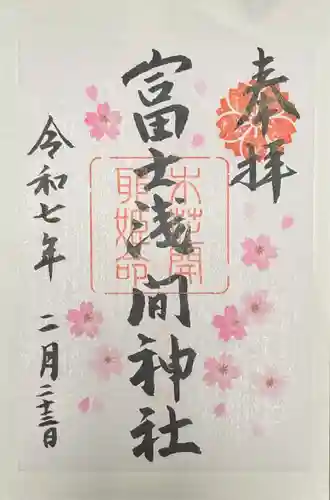 奉拝
富士浅間神社
木花開
耶姫命
令和七年 二月二十三日